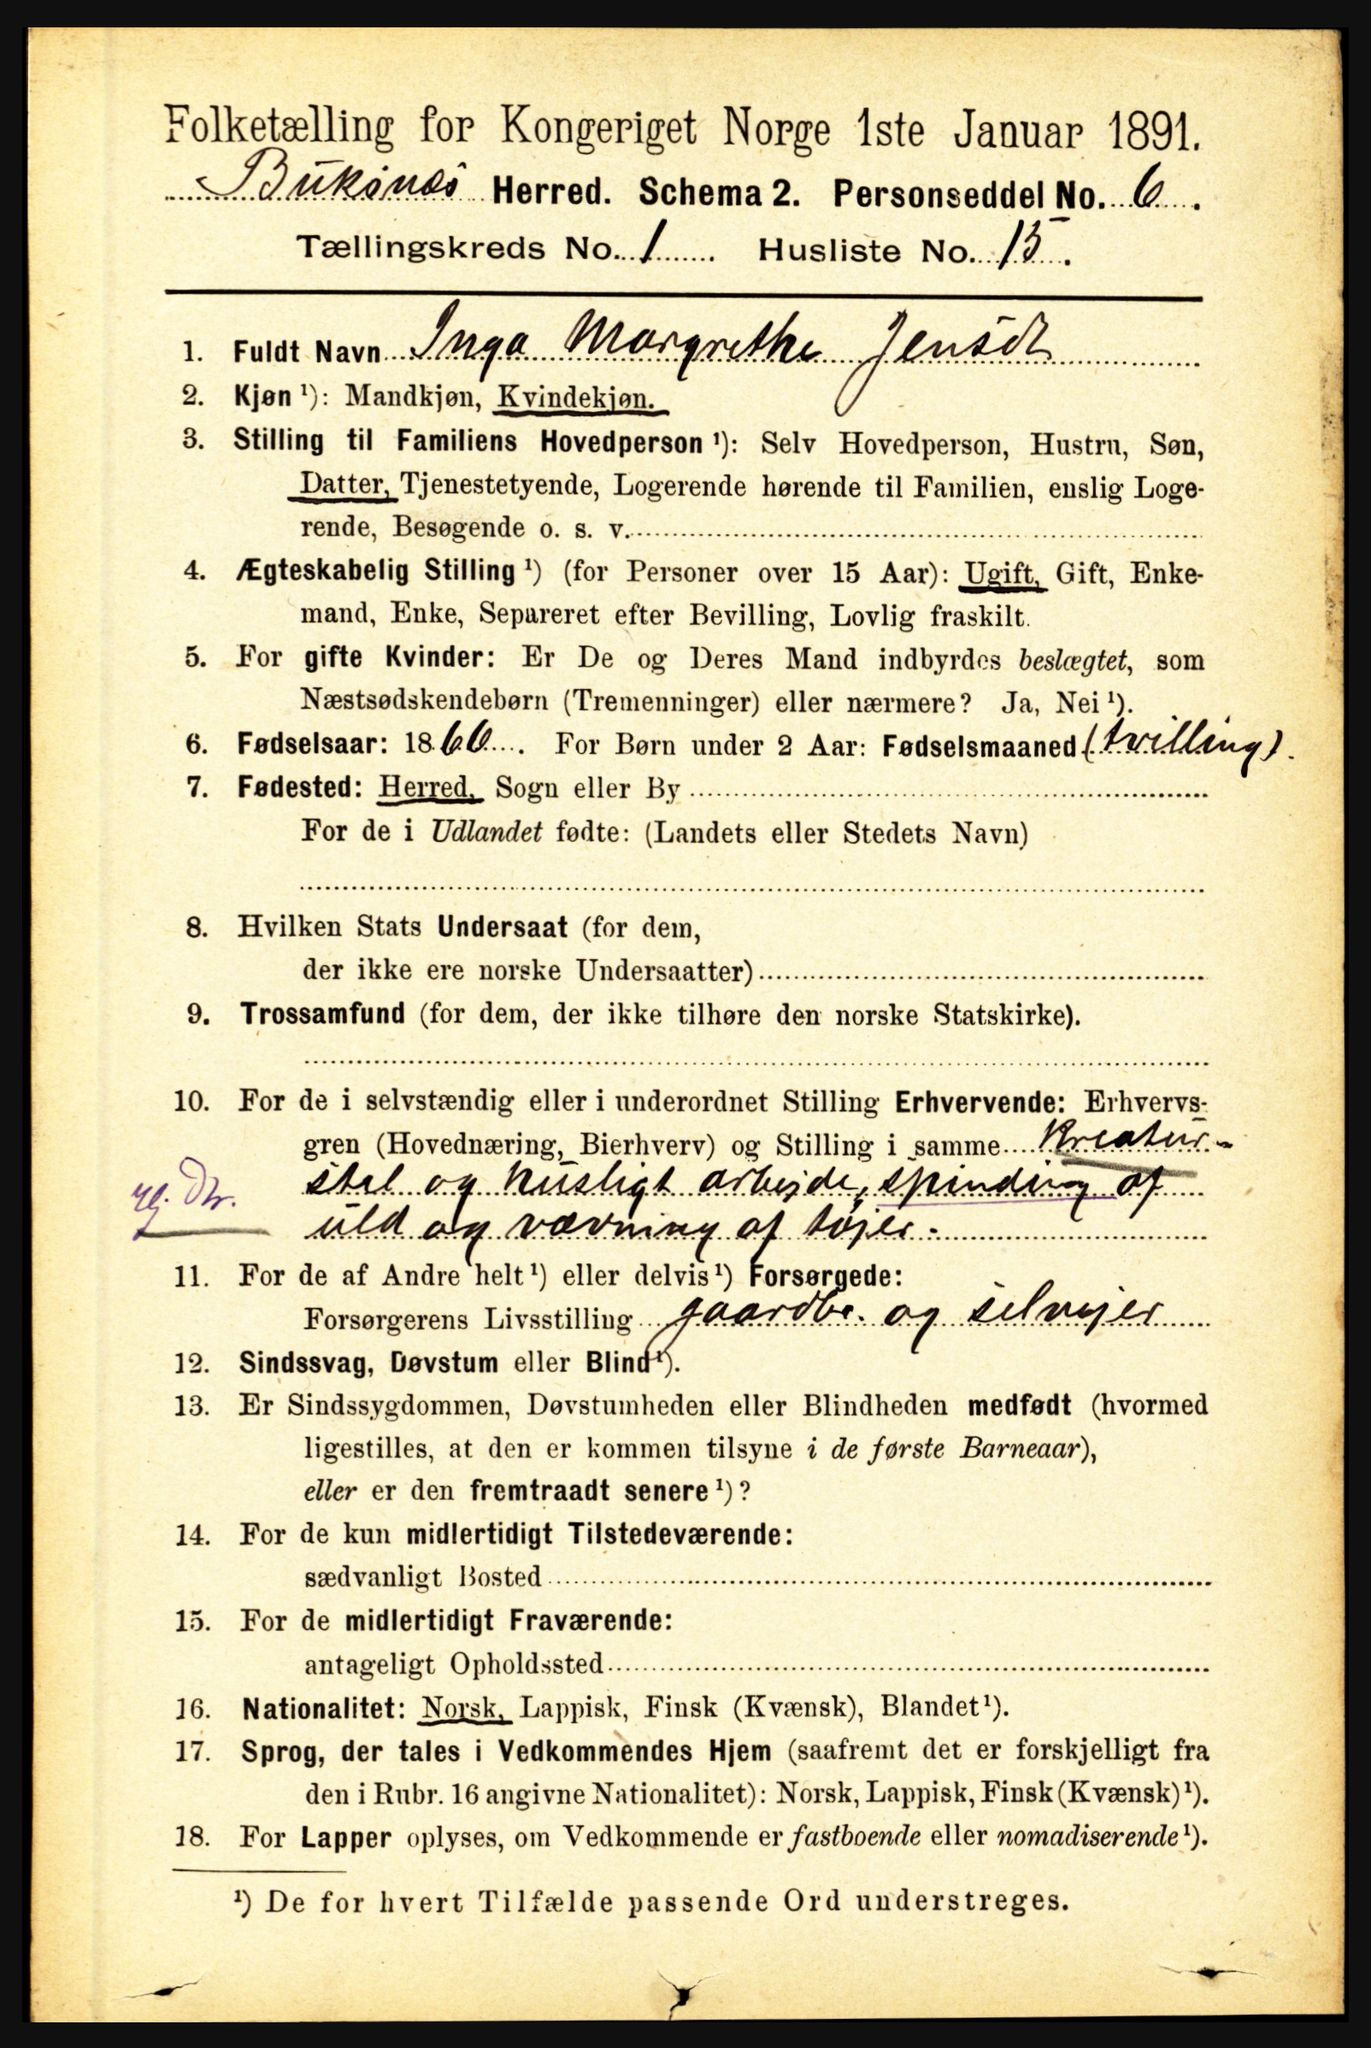 Folketælling for Kongeriget Norge 1ste Januar 1891.
Buksnes Herred. Schema 2. Personseddel No. 6.
Tællingskreds No. 1. Husliste No. 15.
1. Fuldt Navn Inga Margrethe Jensdt
2. Kjøn ¹): Mandkjøn, Kvindekjøn.
3. Stilling til Familiens Hovedperson ¹): Selv Hovedperson, Hustru, Søn,
Datter, Tjenestetyende, Logerende hørende til Familien, enslig Loge-
rende, Besøgende o. s. v.
4. Ægteskabelig Stilling ¹) (for Personer over 15 Aar): Ugift, Gift, Enke-
mand, Enke, Separeret efter Bevilling, Lovlig fraskilt.
5. For gifte Kvinder: Er De og Deres Mand indbyrdes beslægtet, som
Næstsødskendebørn (Tremenninger) eller nærmere? Ja, Nei ¹).
6. Fødselsaar: 1866. For Børn under 2 Aar: Fødselsmaaned (tvilling).
7. Fødested: Herred, Sogn eller By
For de i Udlandet fødte: (Landets eller Stedets Navn)
8. Hvilken Stats Undersaat (for dem,
der ikke ere norske Undersaatter)
9. Trossamfund (for dem, der ikke tilhøre den norske Statskirke).
10. For de i selvstændig eller i underordnet Stilling Erhvervende: Erhvervs-
gren (Hovednæring, Bierhverv) og Stilling i samme Kreatur-
stel og husligt arbejde, spinding af
uld og vævning af tøjer.
11. For de af Andre helt ¹) eller delvis ¹) Forsørgede:
Forsørgerens Livsstilling gaardbr. og selvejer
12. Sindssvag, Døvstum eller Blind ¹).
13. Er Sindssygdommen, Døvstumheden eller Blindheden medfødt (hvormed
ligestilles, at den er kommen tilsyne i de første Barneaar),
eller er den fremtraadt senere ¹)?
14. For de kun midlertidigt Tilstedeværende:
sædvanligt Bosted
15. For de midlertidigt Fraværende:
antageligt Opholdssted
16. Nationalitet: Norsk, Lappisk, Finsk (Kvænsk), Blandet ¹).
17. Sprog, der tales i Vedkommendes Hjem (saafremt det er forskjelligt fra
den i Rubr. 16 angivne Nationalitet): Norsk, Lappisk, Finsk (Kvænsk) ¹).
18. For Lapper oplyses, om Vedkommende er fastboende eller nomadiserende ¹).
¹) De for hvert Tilfælde passende Ord understreges.